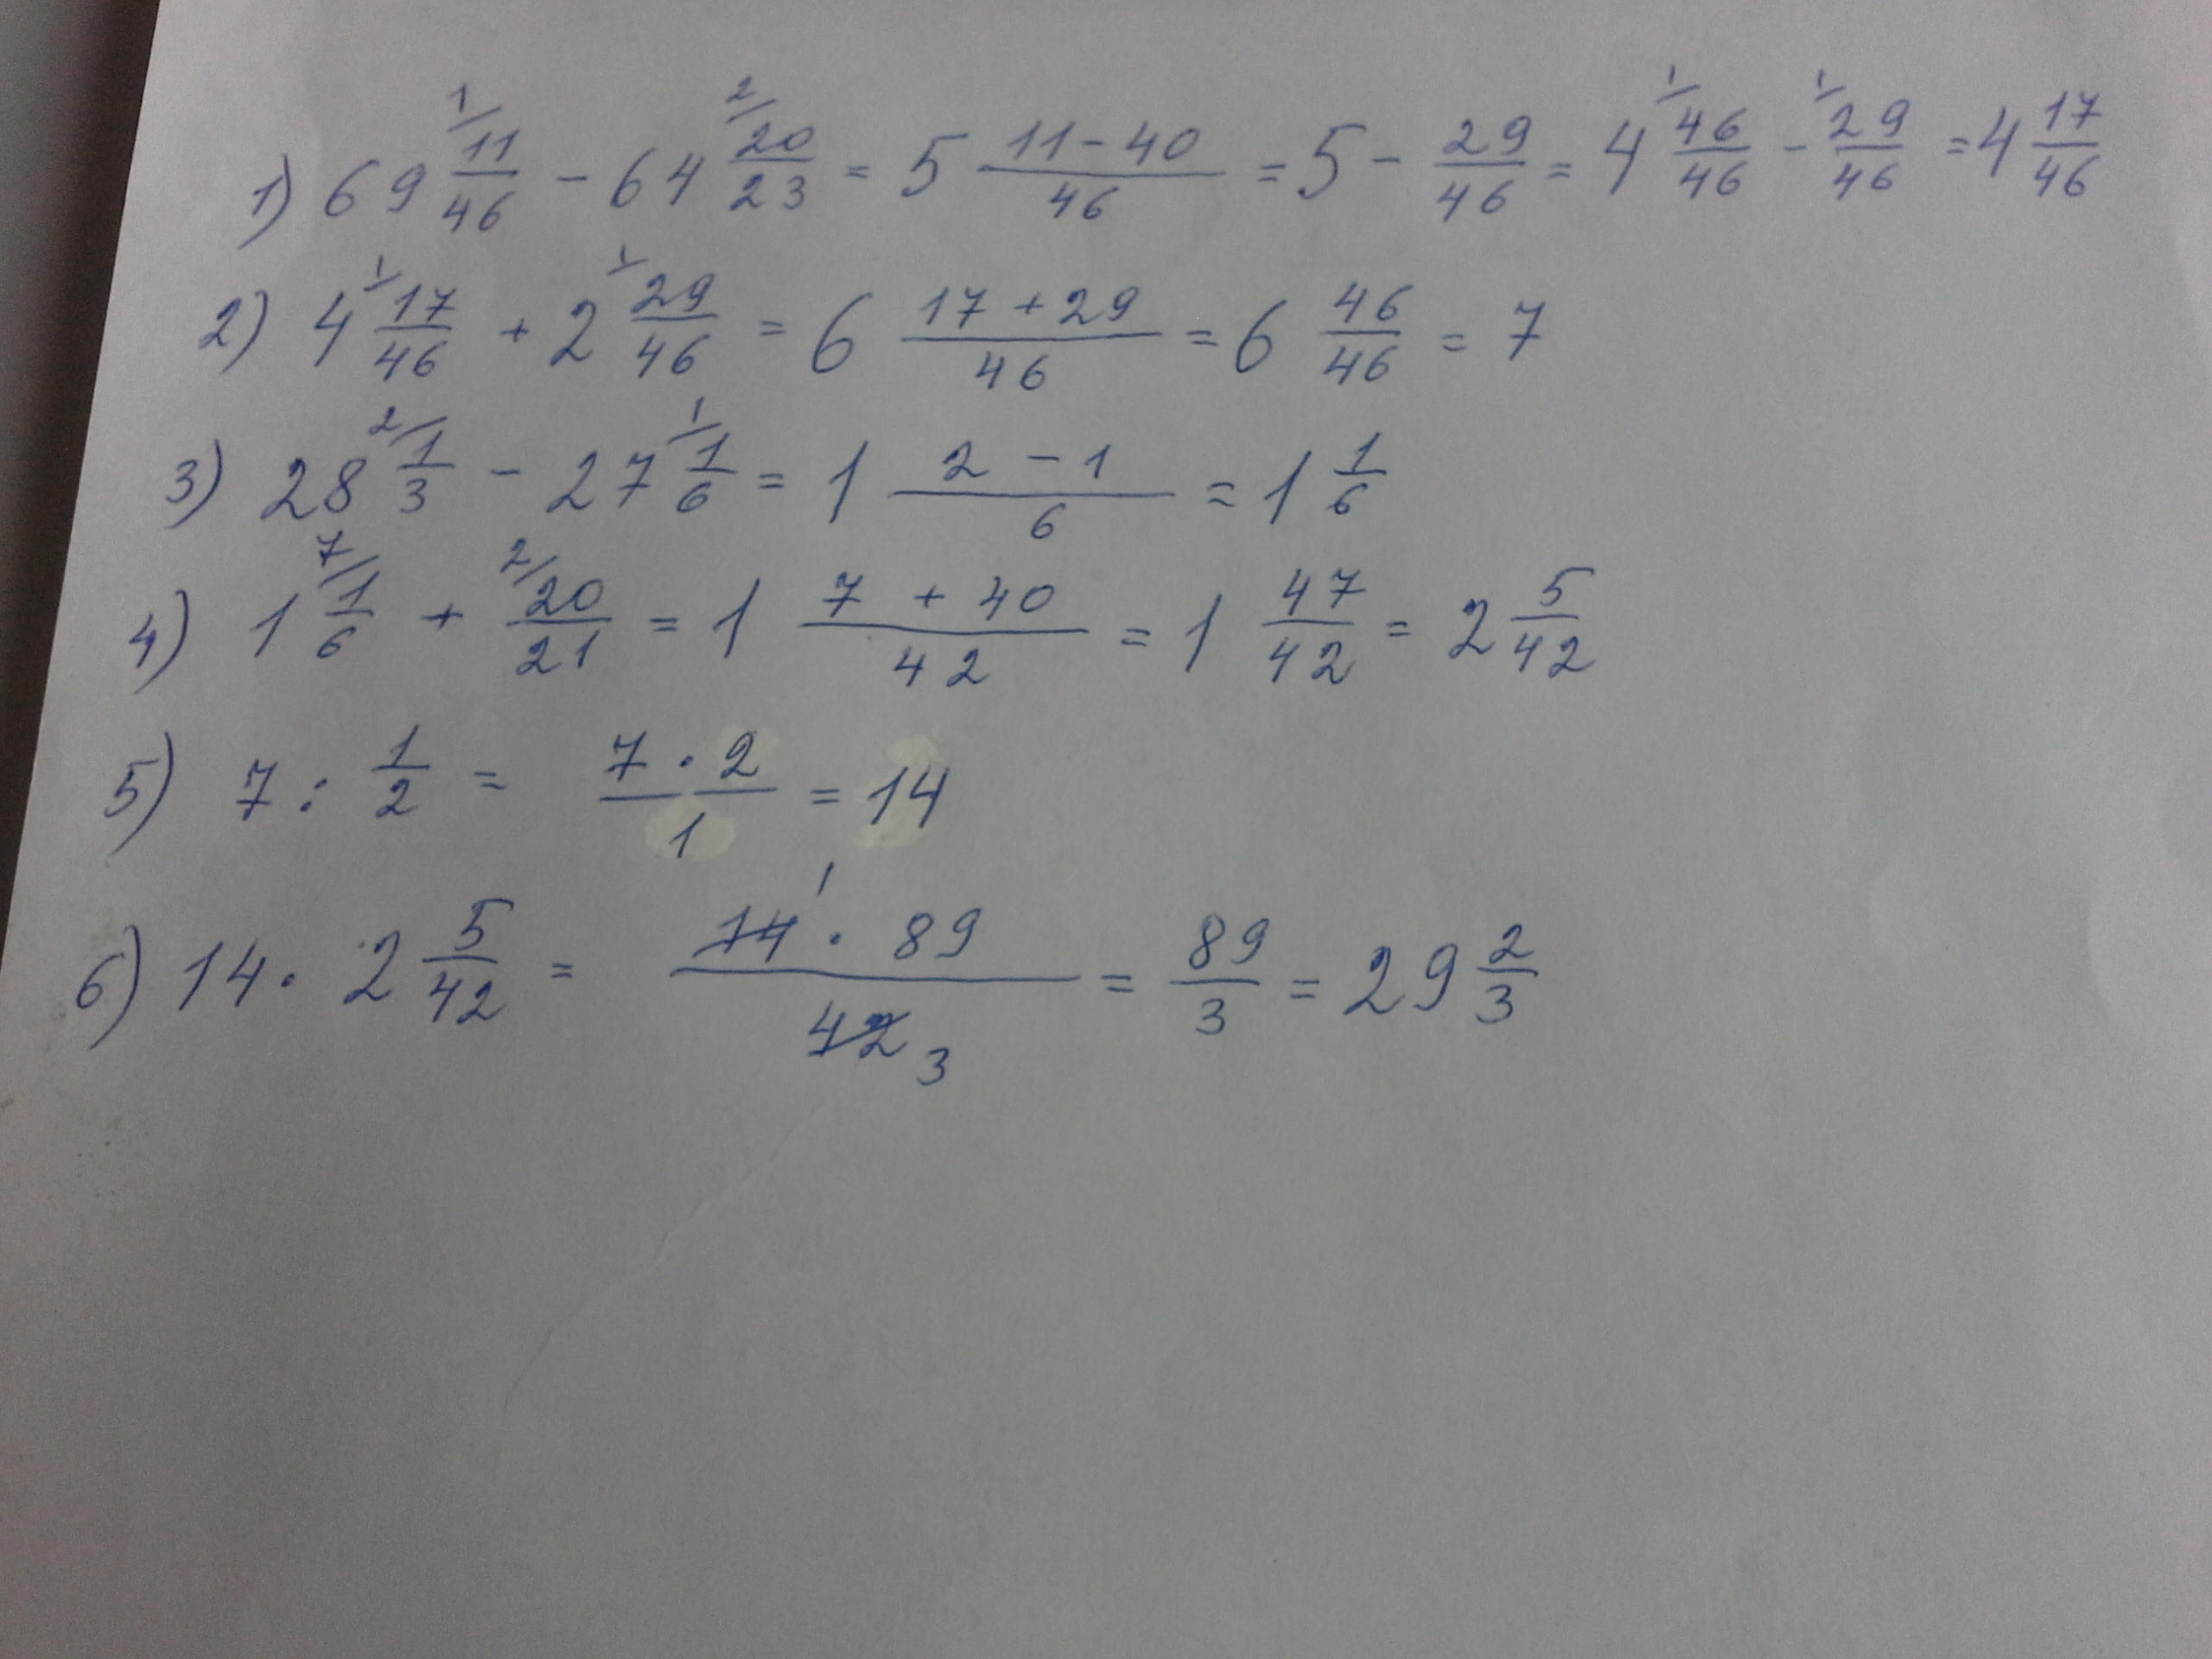 1) 69 11/46 - 64 20/23 = 5 (11 - 40)/46 = 5 - 29/46 = 4 46/46 - 29/46 = 4 17/46
2) 4 17/46 + 2 29/46 = 6 (17 + 29)/46 = 6 46/46 = 7
3) 28 1/3 - 27 1/6 = 1 (2 - 1)/6 = 1 1/6
4) 1 1/6 + 20/21 = 1 (7 + 40)/42 = 1 47/42 = 2 5/42
5) 7 : 1/2 = (7 · 2)/1 = 14
6) 14 · 2 5/42 = (14 · 89)/42 = 89/3 = 29 2/3